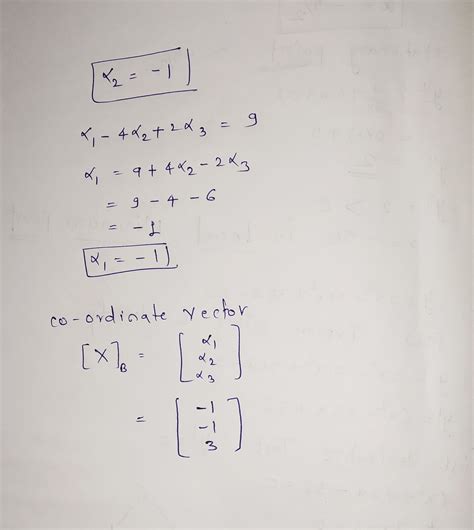 α₂ = -1
α₁ - 4α₂ + 2α₃ = 9
α₁ = 9 + 4α₂ - 2α₃
= 9 - 4 - 6
= -1
α₁ = -1
co-ordinate vector
[X]_B = [α₁ α₂ α₃]
= [-1 -1 3]